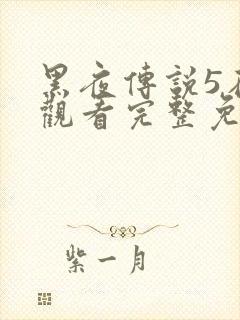 黑夜傳説5
觀看完整免
紫一月